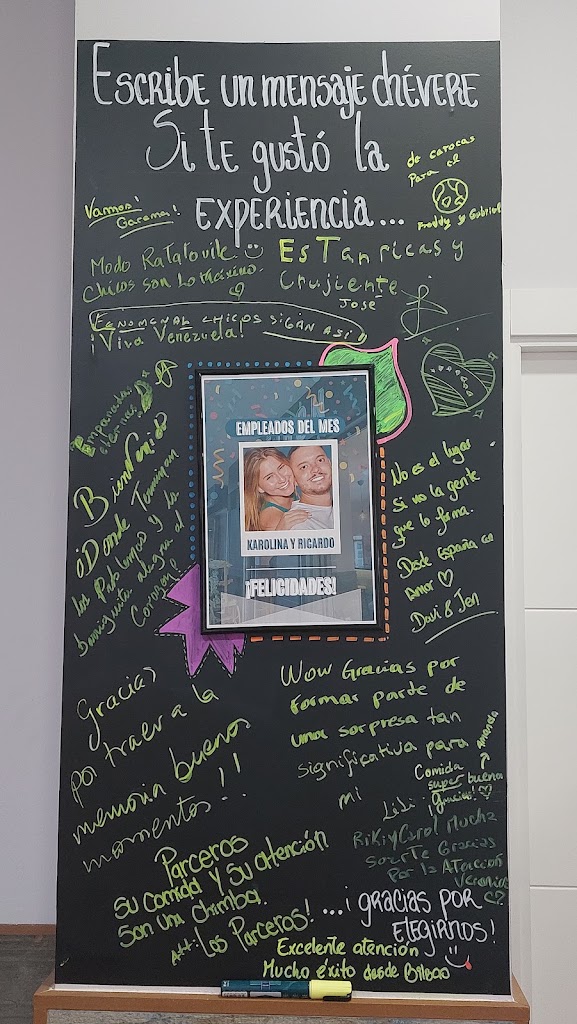 Escribe un mensaje chévere
Si te gustó la
experiencia...
de caracas
para
Freddy y Gabriel
Vamos!
Garama!
Modo Ratatouile
Chicos son lo máximo.
EsTan ricas y
Crujiente
José
Fenomenal chicos sigan así!
¡Viva Venezuela!
Empanadas
eternas
Bienvenido
¿Donde Terminan
las
y la
alegra al
Corazon?
EMPLEADOS DEL MES
KAROLINA Y RICARDO
¡FELICIDADES!
No es el lugar
Si no la gente
que lo forma.
Desde España con
Amor
Davi & Jen
Gracias
por traer a la
memoria buenos
momentos!!
Wow Gracias por
formar parte de
una sorpresa tan
significativa para
mi
Lili
Amanda
Comida
super buena
¡Gracias!
Riki y Carol Mucha
Suerte Gracias
Por la Atencion
Veronica
Parceros
Su comida y su atención
Son una chimba!
Att: Los Parceros!
...¡gracias por
elegirnos!
Excelente atención
Mucho éxito desde Bilbao